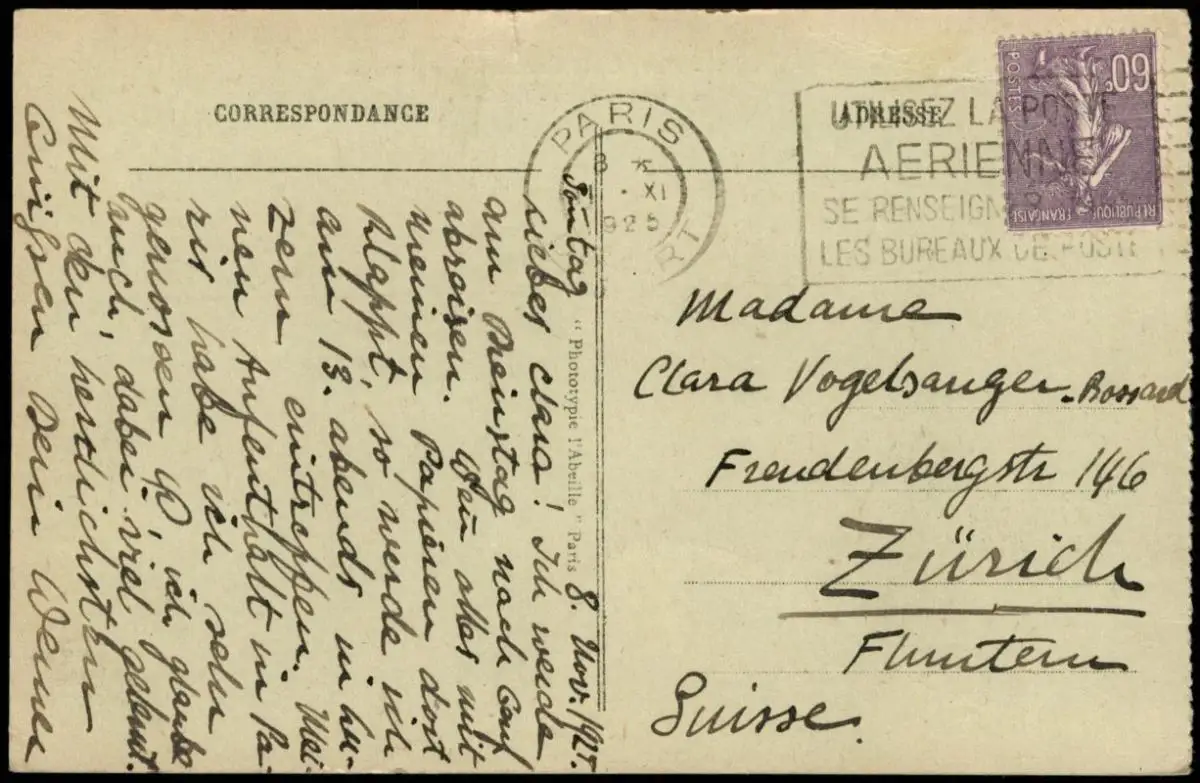 CORRESPONDANCE
ADRESSE
PARIS
8
XI
925
RT
UTILISEZ LA POSTE
AERIENNE
SE RENSEIGN
LES BUREAUX DE POSTE
60c
POSTES
REPUBLIQUE FRANÇAISE
Sontag 8. Nov. 1925.
Lieber Clara! Ich werde
am Dienstag nach Genf
abreisen. Wen alles mit
meinen Papieren dort
klappt, so werde ich
am 13. abends in Lu-
zern eintreffen. Mei-
nen Aufenthalt in Pa-
ris habe ich sehr
genossen &, ich glaube
auch, dabei viel gelernt.
Mit den herzlichsten
Grüssen Dein Werner
"Photostypie l'Abeille" Paris
Madame
Clara Vogelsanger-Bossard
Freudenbergstr 146
Zürich
Fluntern
Suisse.